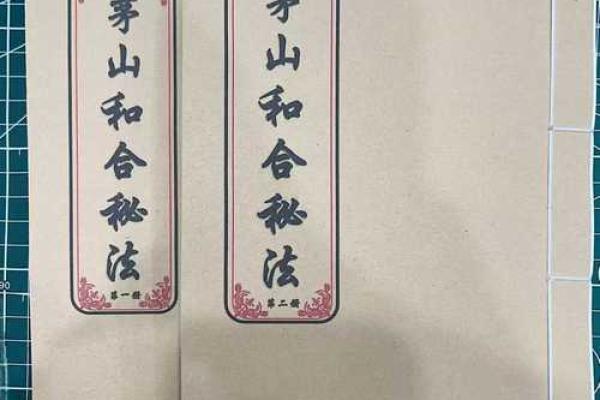 茅山和合秘法
第一册
茅山和合秘法
第二册